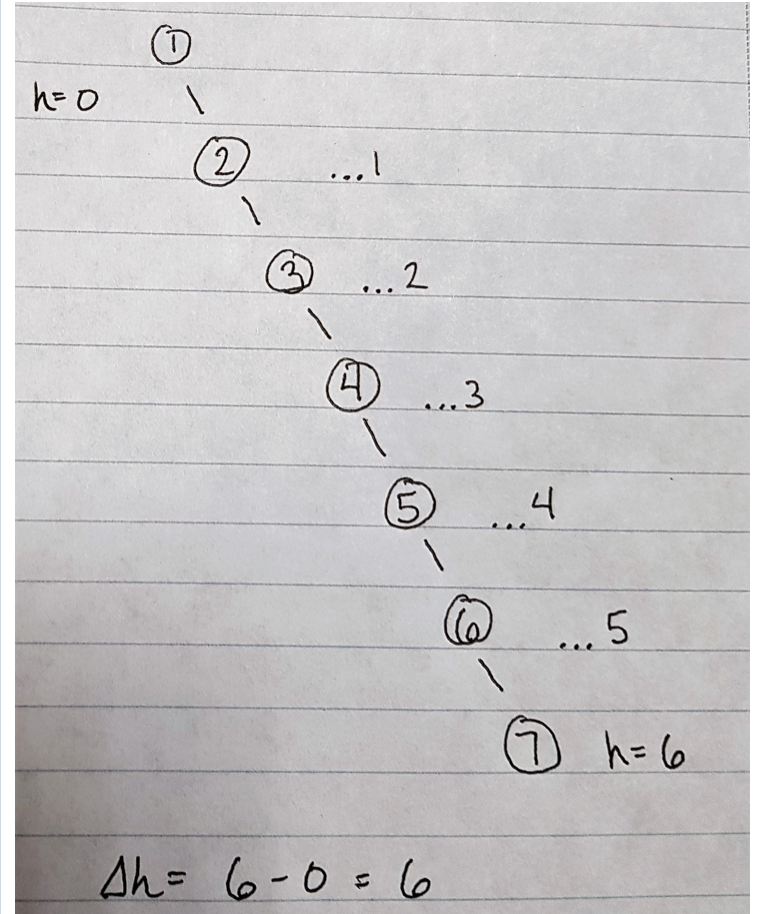 1
h=0
2 ...1
3 ...2
4 ...3
5 ...4
6 ...5
7 h=6
Δh= 6-0 = 6